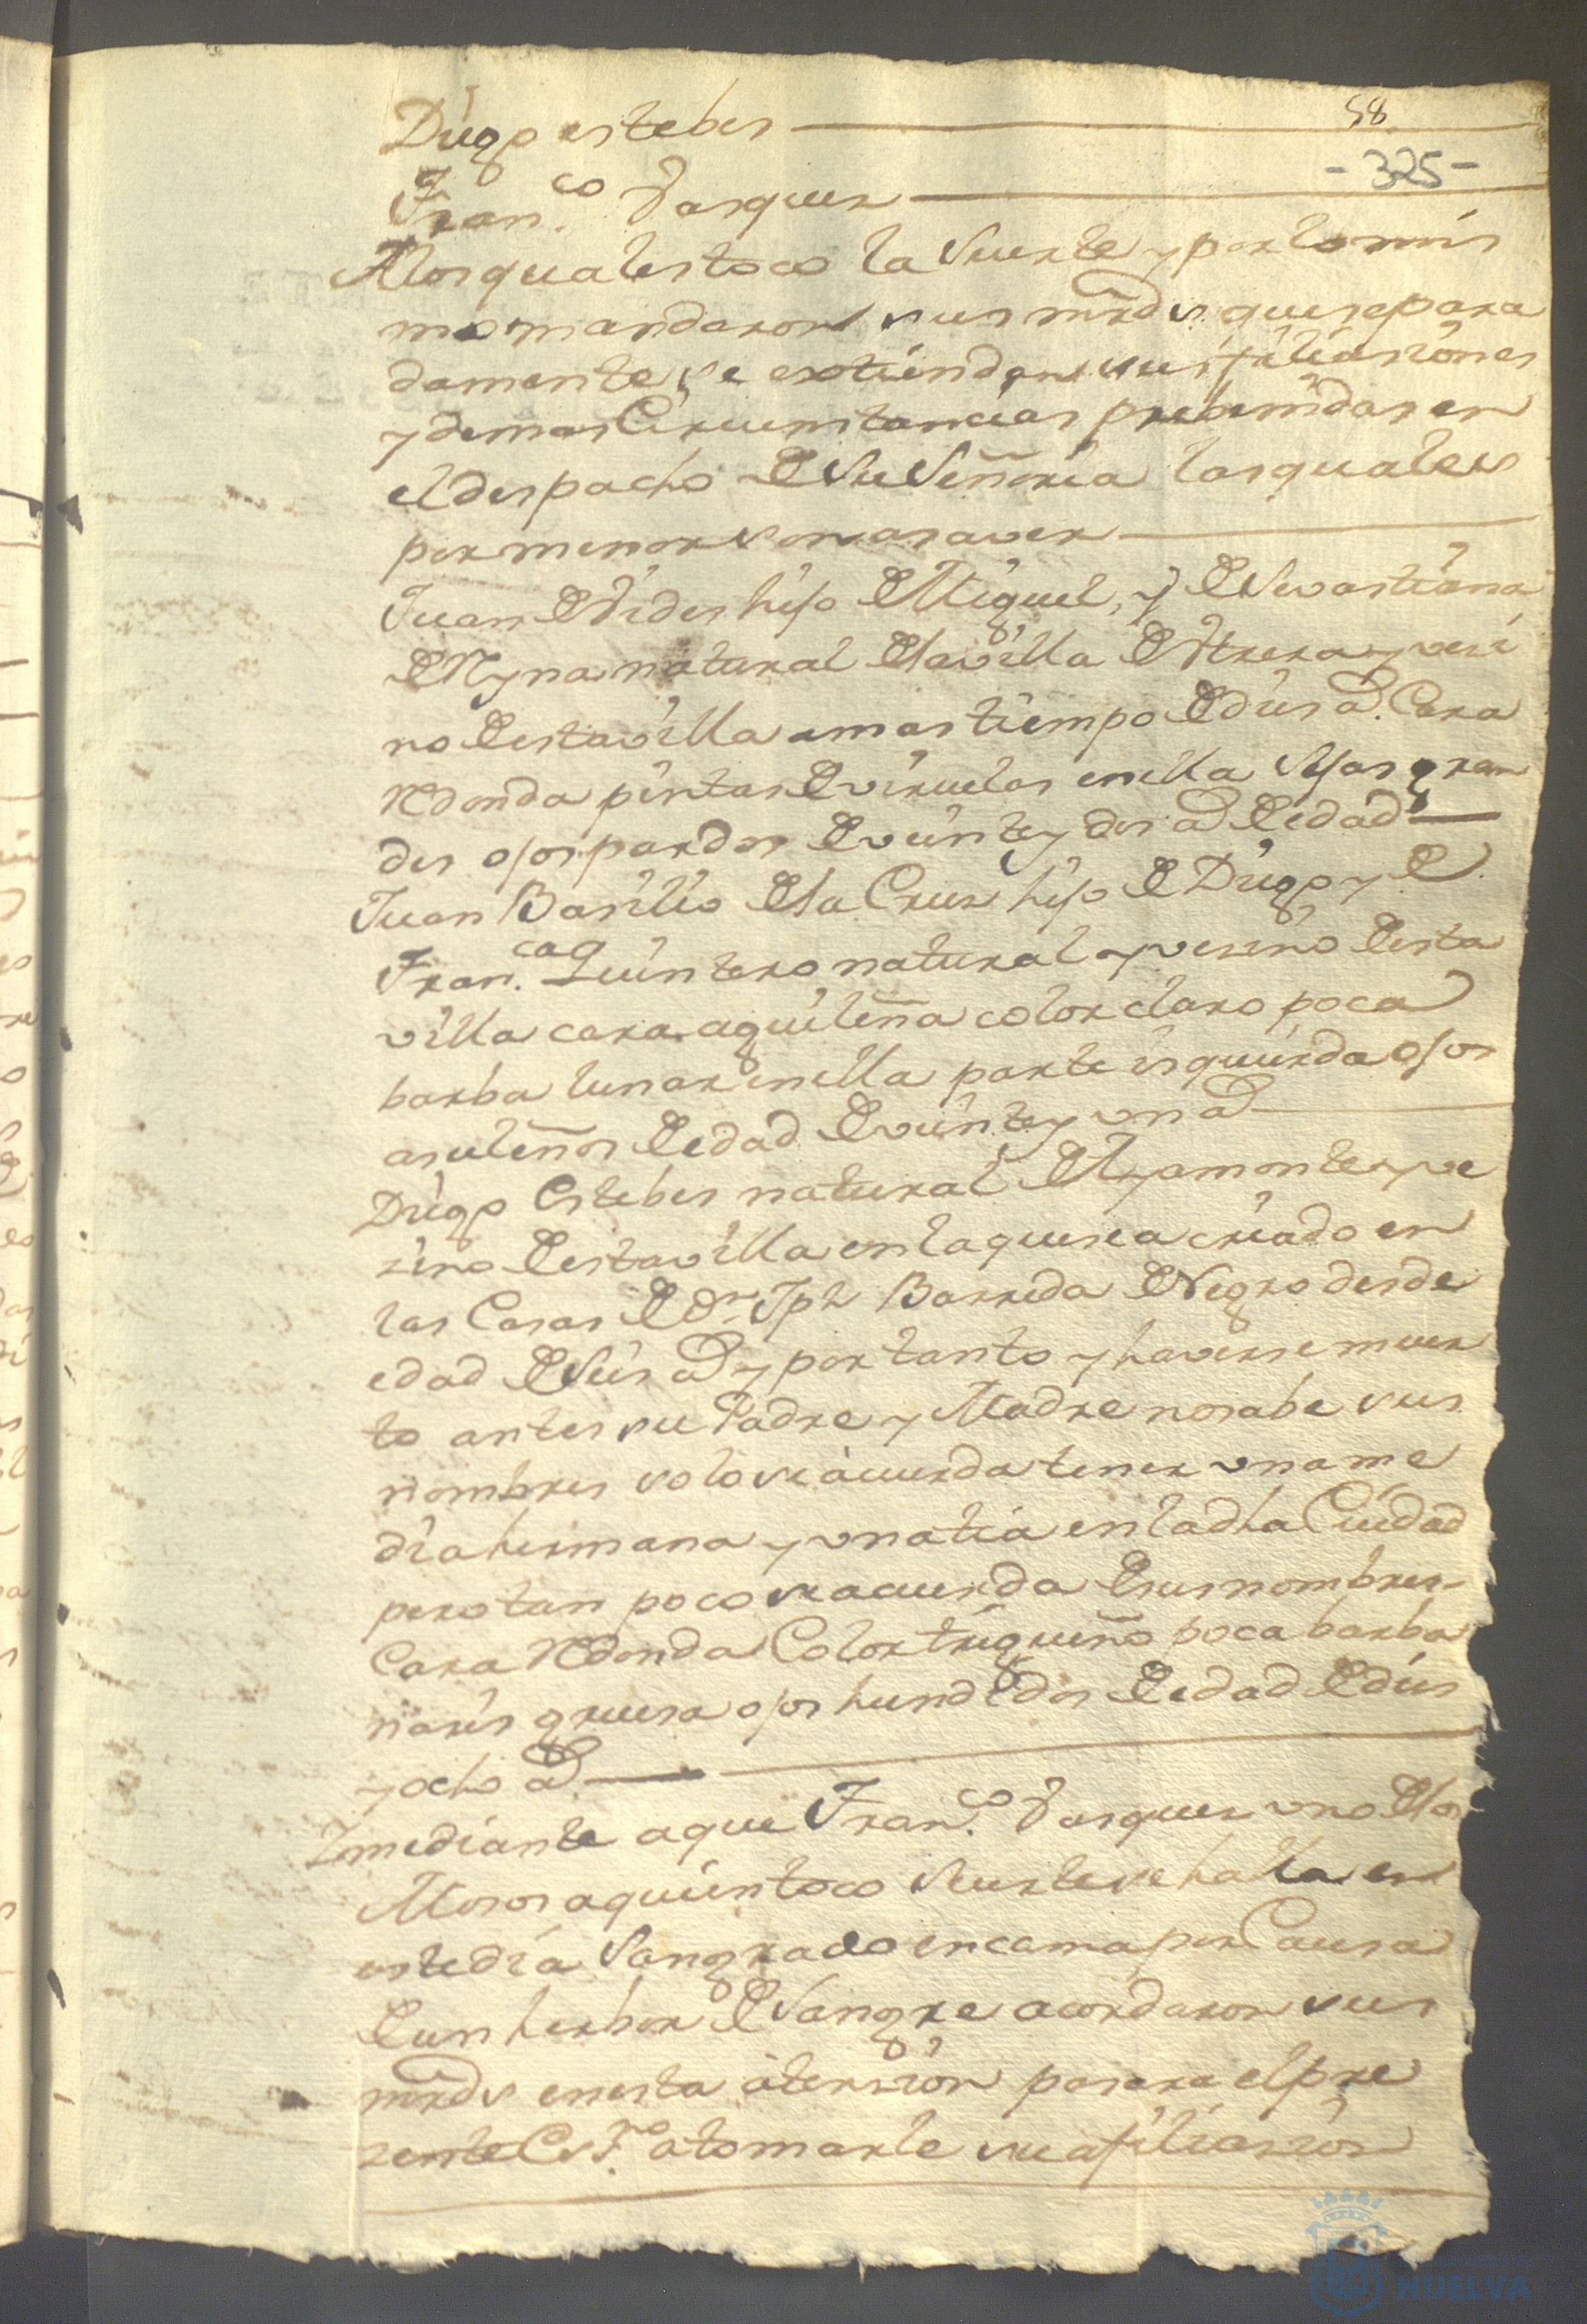 58
Diego estebes
-325-
Fran.co Vasques
Alos quales toco la Suerte y por lo mis
mo mandaron sus mrds. que separa
damente se extiendan sus filiasiones
y demas Circunstancias prebenidas en
el despacho de Su Señoria las quales
por menor son asaver
Juan de Vides hijo de Miguel, y de Sevastiana
de Reyna natural de la villa de Utrera y vesi
no de esta villa a mas tiempo de dies a.s Cara
Redonda pintas de viruelas en ella Sejas gran
des ojos pardos de veinte y dos a.s de edad
Juan Basilio de la Crus hijo de Diego y de
Fran.ca Quintero natural y vesino de esta
villa cara aguileña color claro poca
barba lunar en ella parte isquierda ojos
asuleños de edad de veinte y un a.s
Diego Estebes natural de Ayamonte y ve
sino de esta villa en la que se a criado en
las Casas de D.n Jph Barreda de Negro desde
edad de Seis a.s y por tanto y haverse muer
to antes su Padre y Madre no sabe sus
nombres solo se acuerda tener una me
dia hermana y una tia en la dha Ciudad
pero tan poco se acuerda de sus nombres-
Cara Redonda Color trigueño poca barba
naris gruesa ojos hundidos de edad de dies
y ocho a.s
Y mediante a que Fran.co Vasques uno de los
Mosos a quien toco Suerte se halla en
este dia Sangrado en cama por Causa
de un herbor de Sangre acordaron sus
mrds en esta atension pasara el pre
sente Es.no a tomarle su afiliasion
HUELVA